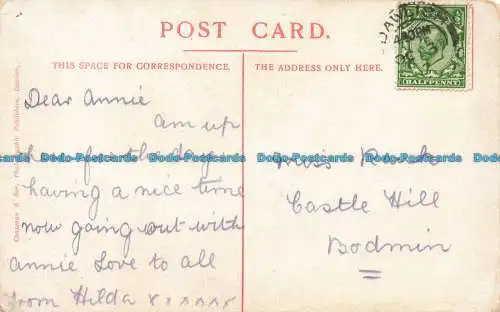 POST CARD.
THIS SPACE FOR CORRESPONDENCE.
THE ADDRESS ONLY HERE.
HALFPENNY
Dear Annie
am up
here for the day
having a nice time
now going out with
annie Love to all
from Hilda x x x x x x
Miss
Castle Hill
Bodmin
Dodo-Postcards Dodo-Postcards Dodo-Postcards Dodo-Postcards Dodo-Postcards
Chapman & Son, Photographic Publishers, Dawlish.